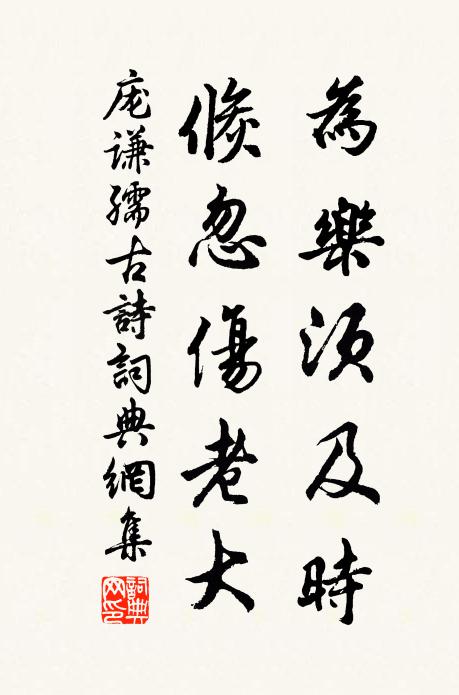 為樂須及時
倏忽傷老大
庞谦孺古詩詞典網集
詞典网印